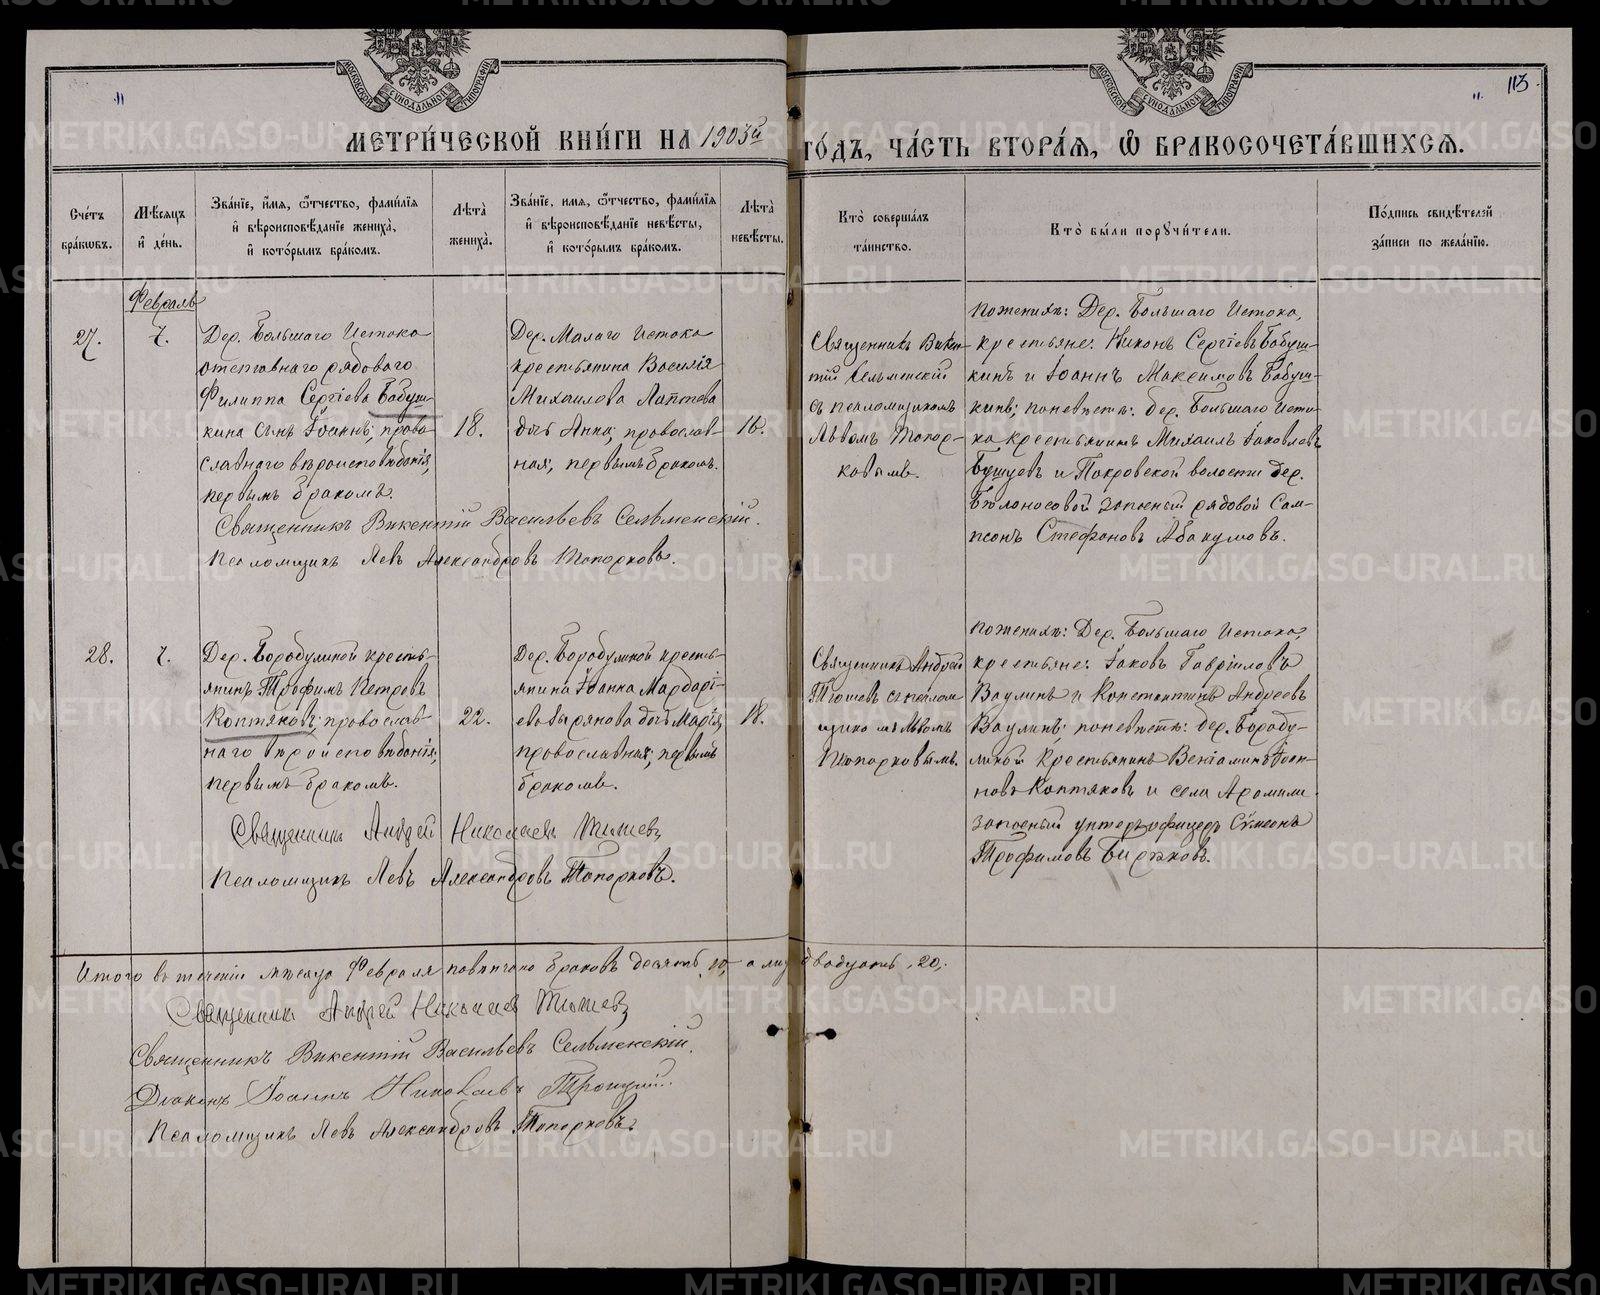 МОСКОВСКОЙ СѴНОДАЛЬНОЙ ТИПОГРАФІИ
МОСКОВСКОЙ СѴНОДАЛЬНОЙ ТИПОГРАФІИ
113.
МЕТРИ́ЧЕСКОЙ КНИ́ГИ НА 1903й ГО́ДЪ, ЧА́СТЬ ВТОРА́Я, Ѽ БРАКОСОЧЕТА́ВШИХСЯ.
Сче́тъ бра́кѡвъ.
Мѣ́сяцъ и҆ де́нь.
Зва́нїе, и҆́мя, ѻ҆́тчество, фами́лїя и҆ вѣроисповѣ́данїе жениха̀, и҆ кото́рымъ бра́комъ.
Лѣта̀ жениха̀.
Зва́нїе, и҆́мя, ѻ҆́тчество, фами́лїя и҆ вѣроисповѣ́данїе невѣ́сты, и҆ кото́рымъ бра́комъ.
Лѣта̀ невѣ́сты.
Кто̀ соверша́лъ та́инство.
Кто̀ бы́ли порꙋчи́тели.
По́дпись свидѣ́телей за́писи по жела́нїю.
Февраль
27.
7.
Дер. Большаго Истока
отставнаго рядоваго
Филиппа Сергіева Бабуш-
кина сынъ Іоаннъ, право-
славнаго вѣроисповѣданія,
первымъ бракомъ.
18.
Дер. Малаго Истока
крестьянина Василія
Михаилова Лаптева
дочь Анна, православ-
ная, первымъ бракомъ.
16.
Священникъ Викен-
тій Сельменскій
съ псаломщикомъ
Львомъ Топор-
ковымъ.
по женихѣ: Дер. Большаго Истока,
крестьяне: Никонъ Сергіевъ Бабуш-
кинъ и Іоаннъ Максимовъ Бабуш-
кинъ; по невѣстѣ: дер. Большаго Исто-
ка крестьянинъ Михаилъ Іаковлевъ
Бушуевъ и Покровской волости дер.
Бѣлоносовой запасный рядовой Сам-
псонъ Стефановъ Абакумовъ.
Священникъ Викентій Васильевъ Сельменскій.
Псаломщикъ Левъ Александровъ Топорковъ.
28.
7.
Дер. Бородулиной кресть-
янинъ Трофимъ Петровъ
Коптяковъ, православ-
наго вѣроисповѣданія,
первымъ бракомъ.
22.
Дер. Бородулиной кресть-
янина Іоанна Мардарі-
ева Зырянова дочь Марія,
православная, первымъ
бракомъ.
18.
Священникъ Андрей
Тюшевъ съ псалом-
щикомъ Львомъ
Топорковымъ.
по женихѣ: Дер. Большаго Истока,
крестьяне: Іаковъ Гавріиловъ
Ваулинъ и Константинъ Андреевъ
Ваулинъ; по невѣстѣ: дер. Бороду-
линой крестьянинъ Веніаминъ Іоан-
новъ Коптяковъ и села Арамили
запасный унтеръ-офицеръ Сѵмеонъ
Трофимовъ Бирюковъ.
Священникъ Андрей Николаевъ Тюшевъ
Псаломщикъ Левъ Александровъ Топорковъ.
Итого въ теченіи мѣсяца Февраля повѣнчано браковъ десять, 10, а лицъ двадцать, 20,.
Священникъ Андрей Николаевъ Тюшевъ
Священникъ Викентій Васильевъ Сельменскій.
Діаконъ Іоаннъ Николаевъ Троицкій.
Псаломщикъ Левъ Александровъ Топорковъ.
METRIKI.GASO-URAL.RU